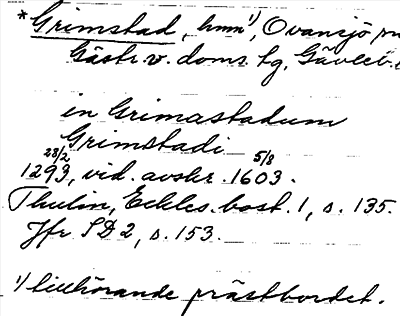 *Grimstad, hmn¹⁾, Ovansjö sn
Gästr. v. doms. tg, Gävleb.
in Grimastadum
Grimstadi
1293 28/2, vid. avskr. 1603 5/8.
Thulin, Eckles. bost. 1, s. 135.
Jfr SD 2, s. 153.
¹⁾ tillhörande prästbordet.